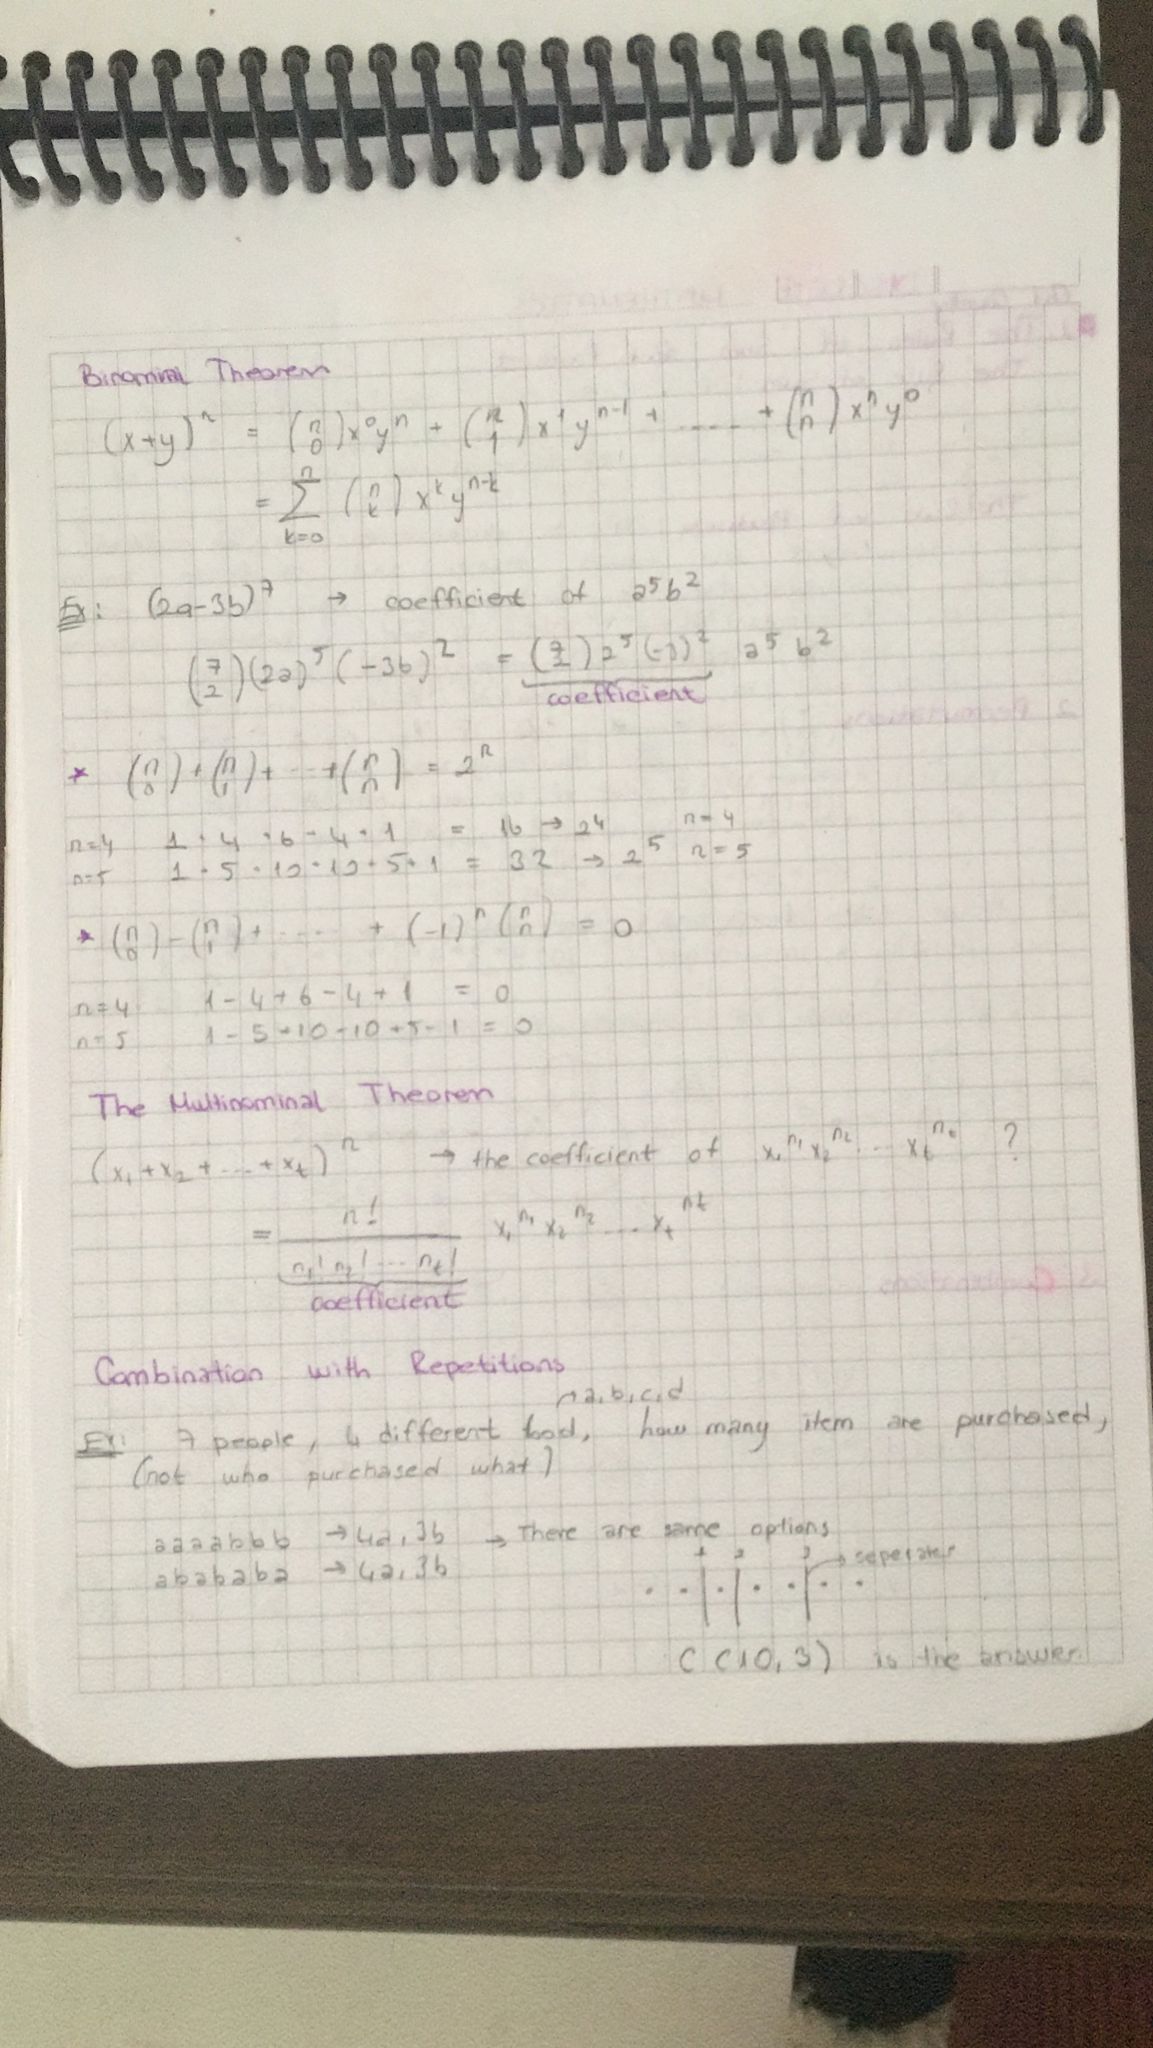 Binominal Theorem
(x+y)^n = (n 0) x^0 y^n + (n 1) x^1 y^(n-1) + ..... + (n n) x^n y^0
= Σ_(k=0)^n (n k) x^k y^(n-k)
Ex: (2a-3b)^7 → coefficient of a^5 b^2
(7 2)(2a)^5 (-3b)^2 = (7 2) 2^5 (-3)^2 a^5 b^2
coefficient
* (n 0) + (n 1) + ... + (n n) = 2^n
n=4 1 + 4 + 6 + 4 + 1 = 16 → 2^4 n=4
n=5 1 + 5 + 10 + 10 + 5 + 1 = 32 → 2^5 n=5
* (n 0) - (n 1) + ..... + (-1)^n (n n) = 0
n=4 1 - 4 + 6 - 4 + 1 = 0
n=5 1 - 5 + 10 - 10 + 5 - 1 = 0
The Multinominal Theorem
(x_1 + x_2 + ... + x_t)^n → the coefficient of x_1^n_1 x_2^n_2 ... x_t ?
= n! / (n_1! n_2! ... n_t!) x_1^n_1 x_2^n_2 ... x_t^nt
coefficient
Combination with Repetitions
→ a, b, c, d
Ex: 7 people, 4 different food, how many item are purchased,
(not who purchased what)
aaaabbb → 4a, 3b → There are same options
abababa → 4a, 3b
1 2 3 → seperater
. . | . | . . | . .
C(10, 3) is the answer